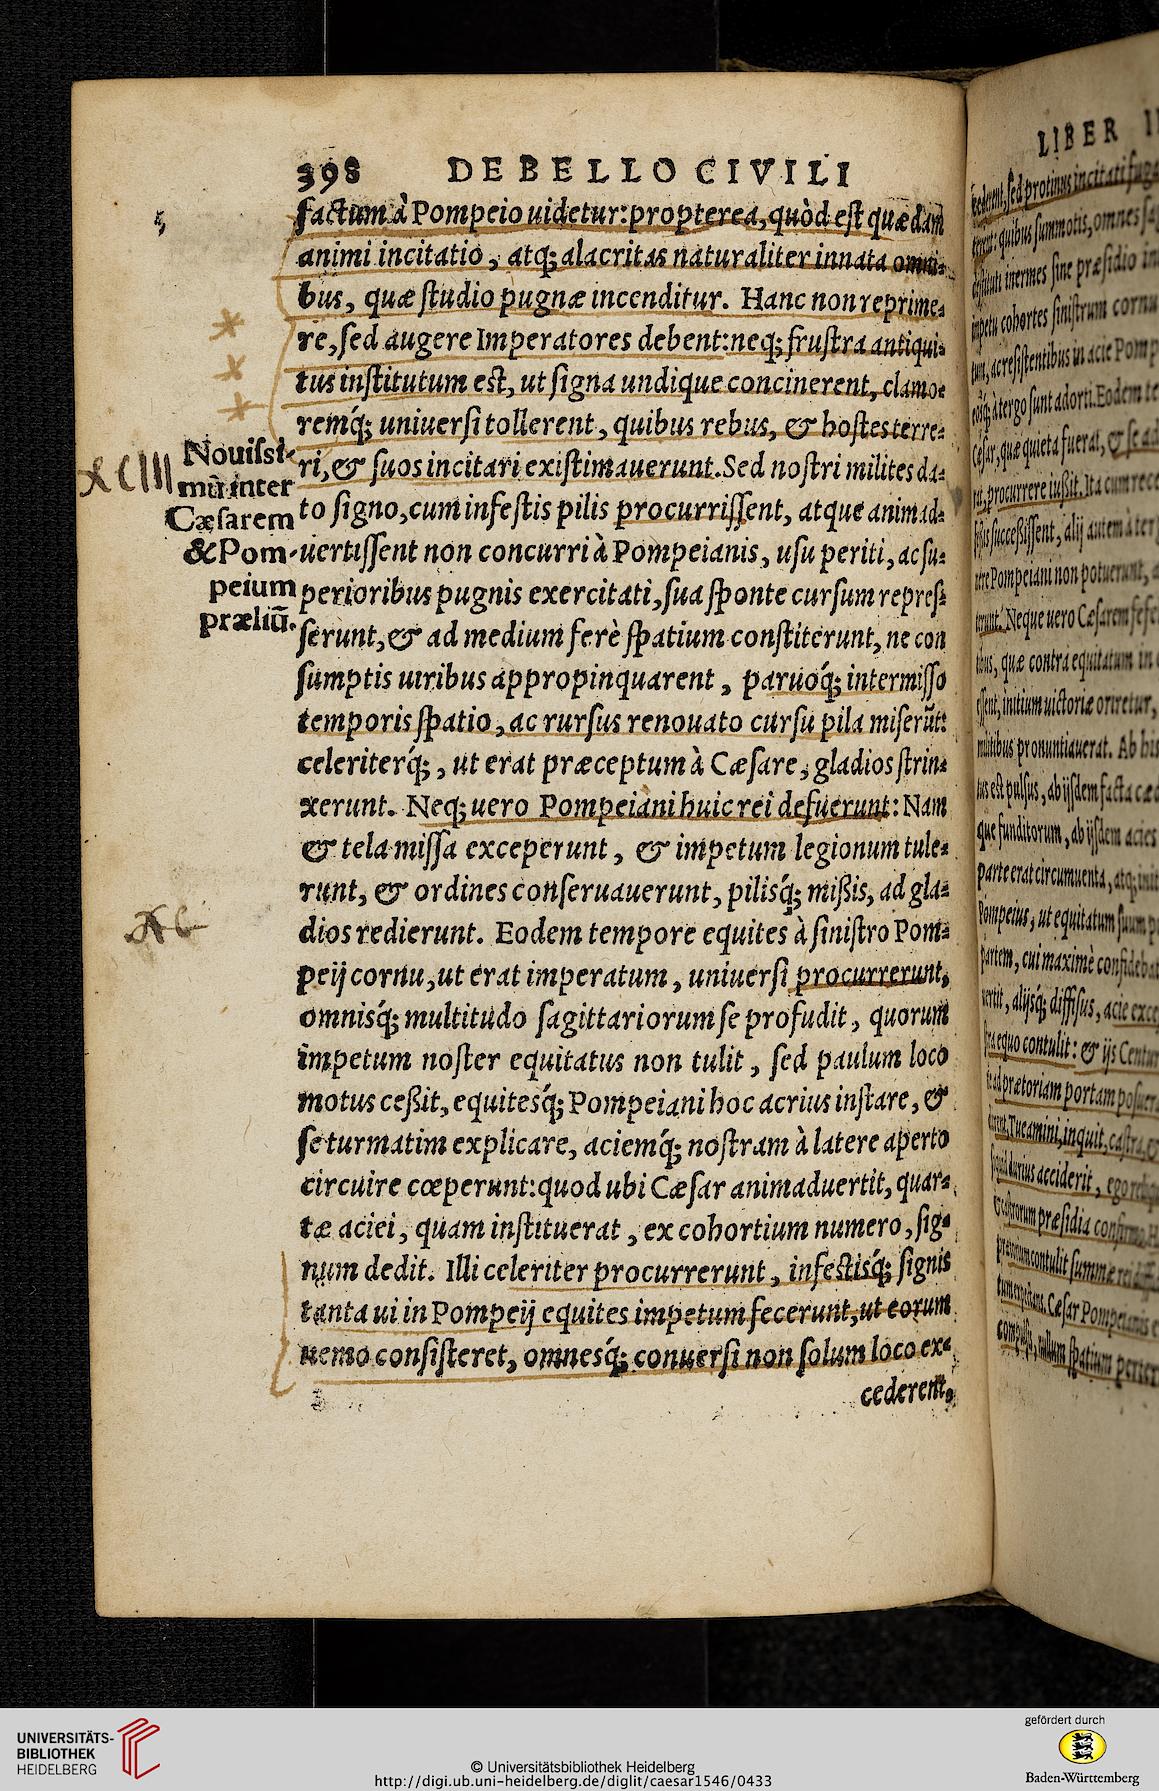 398 DE BELLO CIVILI
factum à Pompeio uidetur: propterea, quòd est quædam
animi incitatio, atq; alacritas naturaliter innata omni-
bus, quæ studio pugnæ incenditur. Hanc non reprime-
re, sed augere Imperatores debent: neq; frustra antiqui-
tus institutum est, ut signa undique concinerent, clamo-
remq́; uniuersi tollerent, quibus rebus, & hostes terre-
ri, & suos incitari existimauerunt. Sed nostri milites da-
to signo, cum infestis pilis procurrissent, atque animad-
uertissent non concurri à Pompeianis, usu periti, ac su-
perioribus pugnis exercitati, sua sponte cursum repres-
serunt, & ad medium ferè spatium constiterunt, ne con
sumptis uiribus appropinquarent, paruoq́; intermisso
temporis spatio, ac rursus renouato cursu pila miserūt:
celeriterq́;, ut erat præceptum à Cæsare, gladios strin-
xerunt. Neq; uero Pompeiani huic rei defuerunt: Nam
& tela missa exceperunt, & impetum legionum tule-
runt, & ordines conseruauerunt, pilisq́; mißis, ad gla-
dios redierunt. Eodem tempore equites à sinistro Pom-
peij cornu, ut erat imperatum, uniuersi procurrerunt,
omnisq́; multitudo sagittariorum se profudit, quorum
impetum noster equitatus non tulit, sed paulum loco
motus ceßit, equitesq́; Pompeiani hoc acrius instare, &
se turmatim explicare, aciemq́; nostram à latere aperto
circuire cœperunt: quod ubi Cæsar animaduertit, quar-
tæ aciei, quam instituerat, ex cohortium numero, sig-
num dedit. Illi celeriter procurrerunt, infestisq́; signis
tanta ui in Pompeij equites impetum fecerunt, ut eorum
nemo consisteret, omnesq́; conuersi non solum loco ex-
cederent,
XCIII
Nouissi-
mū inter
Cæsarem
& Pom-
peium
præliū.
LIBER
cederent, sed protinus incitati fuga
terent: quibus summotis, omnes
destituti inermes sine præsidio
impetu cohortes sinistrum cornu
tum, ac resistentibus in acie Pomp
eosq́; à tergo sunt adorti. Eodem
Cæsar, quæ quieta fuerat, & se ad
rat, procurrere iußit. Ita cum rece
successissent, alij autem à ter
Pompeiani non potuerunt,
Neque uero Cæsarem fefel
quæ contra equitatum in
essent, initium uictoriæ oriretur,
militibus pronuntiauerat. Ab his
est pulsus, ab ijsdem facta cæd
que funditorum, ab ijsdem acies
parte erat circumuenta, atq; init
Pompeius, ut equitatum suum
partem, cui maximè confideba
uertit, alijsq́; diffisus, acie exce
equo contulit: & ijs Centur
ad prætoriam portam posuer
Tueamini, inquit, castra,
durius acciderit, ego
castrorum præsidia confirmo.
contulit summæ rei
Cæsar Pompeianis
compulsis, nullum spatium perter
UNIVERSITÄTS-
BIBLIOTHEK
HEIDELBERG
© Universitätsbibliothek Heidelberg
http://digi.ub.uni-heidelberg.de/diglit/caesar1546/0433
gefördert durch
Baden-Württemberg